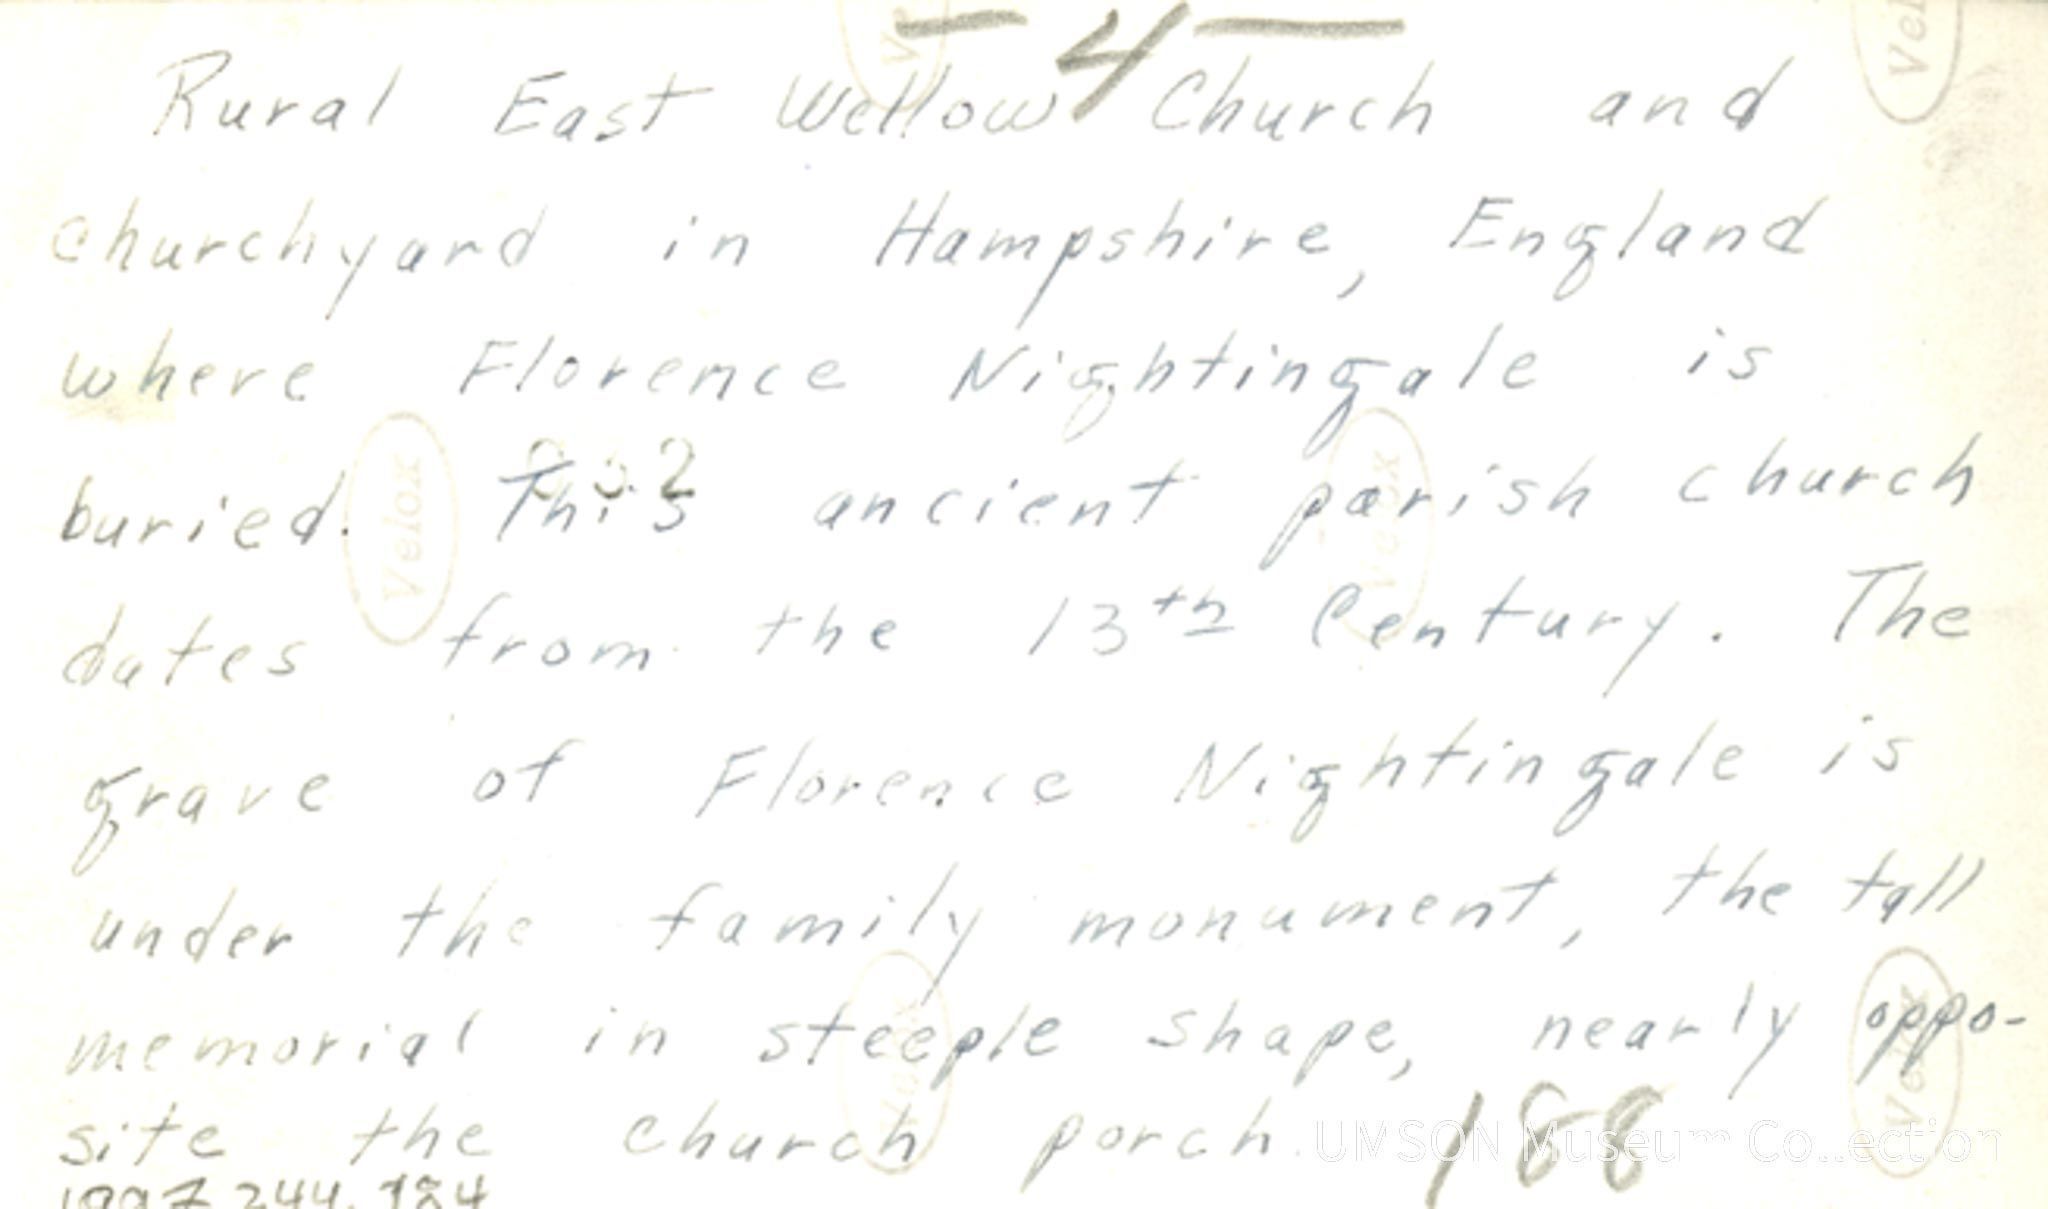 — 4 —
Rural East Wellow Church and
churchyard in Hampshire, England
where Florence Nightingale is
buried. This ancient parish church
dates from the 13th Century. The
grave of Florence Nightingale is
under the family monument, the tall
memorial in steeple shape, nearly oppo-
site the church porch.
188
UMSON Museum Collection
1997.244.184
Velox
Velox
Velox
Velox
Velox
Velox